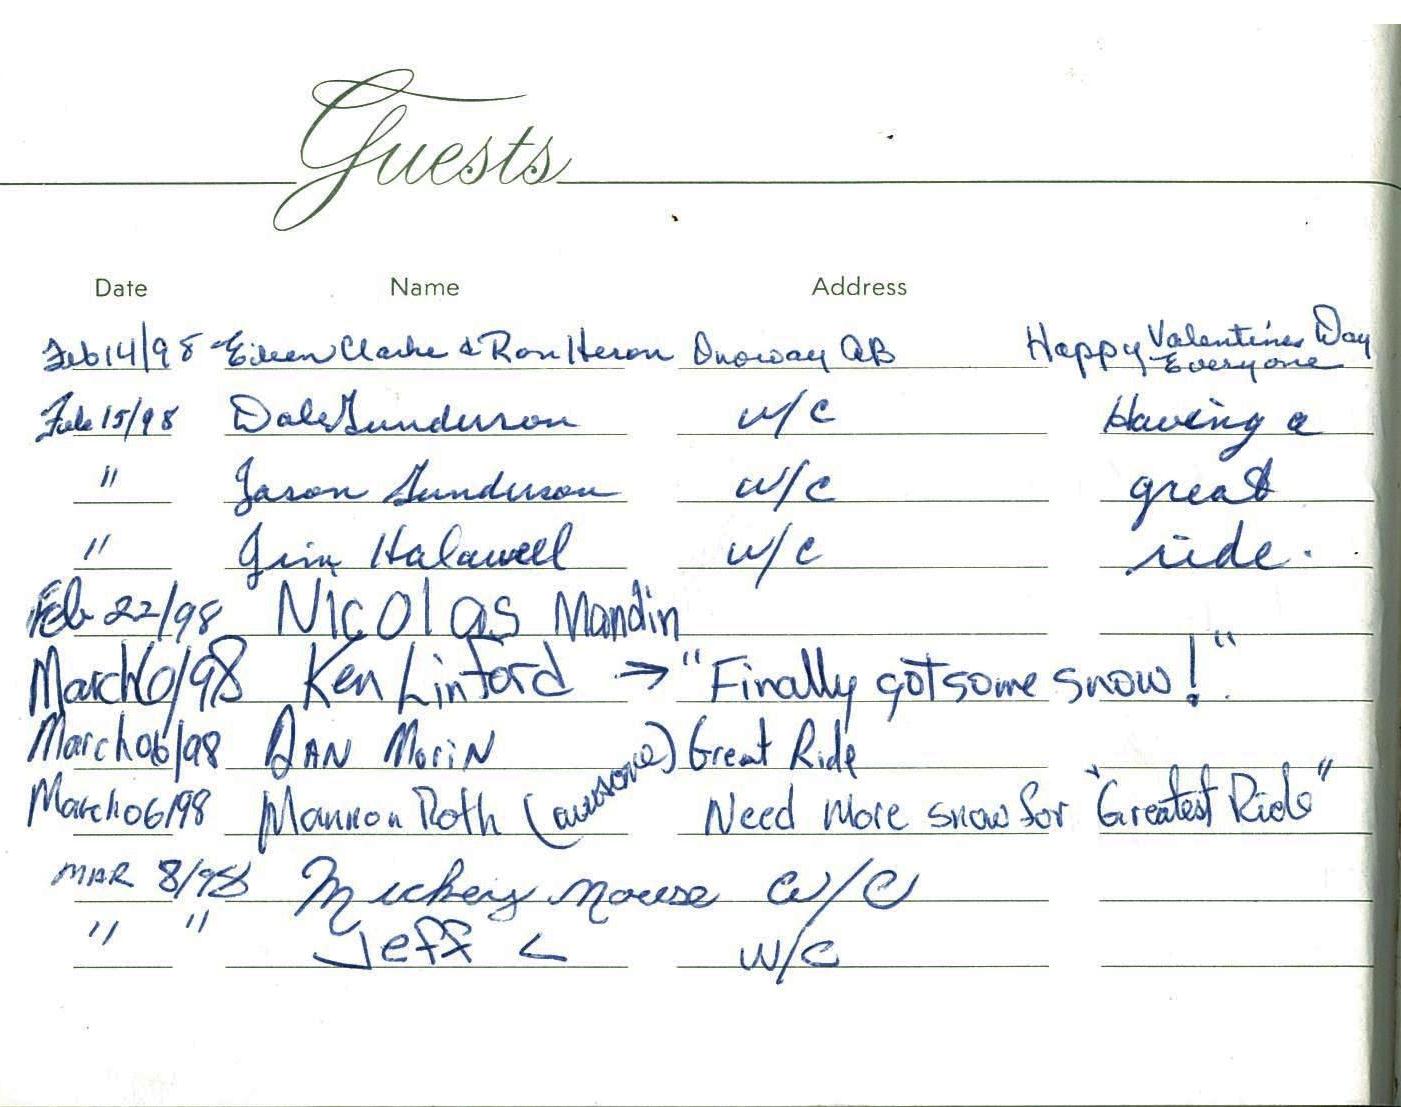 Guests
Date Name Address
Feb 14/98 Eileen Clarke & Ron Heron Onoway AB Happy Valentines Day Everyone
Feb 15/98 Dale Gunderson w/c Having a
" Jason Gunderson w/c great
" Jim Halawell w/c ride.
Feb 22/98 Nicolas Mandin
March 6/98 Ken Linford → "Finally got some snow!"
March 06/98 DAN MoriN Great Ride
March 06/98 Mannon Roth (awesome) Need more snow for "Greatest Ride"
MAR 8/98 Mickey Mouse w/c
" " Jeff L w/c